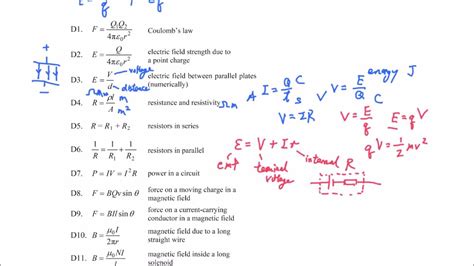 D1. F = Q₁Q₂ / 4πε₀r² Coulomb's law
D2. E = Q / 4πε₀r² electric field strength due to a point charge
D3. E = V/d electric field between parallel plates (numerically)
voltage
distance
D4. R = ρl/A resistance and resistivity Ωm
Ωm m
m²
D5. R = R₁ + R₂ resistors in series
D6. 1/R = 1/R₁ + 1/R₂ resistors in parallel
D7. P = IV = I²R power in a circuit
D8. F = BQv sin θ force on a moving charge in a magnetic field
D9. F = BIl sin θ force on a current-carrying conductor in a magnetic field
D10. B = μ₀I / 2πr magnetic field due to a long straight wire
D11. B = μ₀NI / l magnetic field inside a long solenoid
energy J
A I = Q/t C s
V = E/Q C
V = IR
V = E/q E = qV
qV = 1/2 mv²
ε = V + Ir
emf terminal voltage internal R
+
-